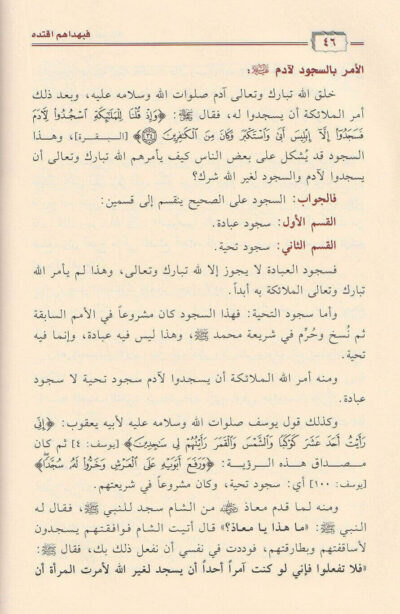 ٤٦
فبهداهم اقتده
الأمر بالسجود لآدم ﷺ:
خلق الله تبارك وتعالى آدم صلوات الله وسلامه عليه، وبعد ذلك
أمر الملائكة أن يسجدوا له، فقال ﷺ: ﴿وَإِذْ قُلْنَا لِلْمَلَٰٓئِكَةِ ٱسْجُدُوا۟ لِـَٔادَمَ
فَسَجَدُوٓا۟ إِلَّآ إِبْلِيسَ أَبَىٰ وَٱسْتَكْبَرَ وَكَانَ مِنَ ٱلْكَٰفِرِينَ ٣٤﴾ [البقرة]، وهذا
السجود قد يُشكل على بعض الناس كيف يأمرهم الله تبارك وتعالى أن
يسجدوا لآدم والسجود لغير الله شرك؟
فالجواب: السجود على الصحيح ينقسم إلى قسمين:
القسم الأول: سجود عبادة.
القسم الثاني: سجود تحية.
فسجود العبادة لا يجوز إلا لله تبارك وتعالى، وهذا لم يأمر الله
تبارك وتعالى الملائكة به أبداً.
وأما سجود التحية: فهذا السجود كان مشروعاً في الأمم السابقة
ثم نُسخ وحُرِّم في شريعة محمد ﷺ، وهذا ليس فيه عبادة، وإنما فيه
تحية.
ومنه أمر الله الملائكة أن يسجدوا لآدم سجود تحية لا سجود
عبادة.
وكذلك قول يوسف صلوات الله وسلامه عليه لأبيه يعقوب: ﴿إِنِّى
رَأَيْتُ أَحَدَ عَشَرَ كَوْكَبًا وَٱلشَّمْسَ وَٱلْقَمَرَ رَأَيْتُهُمْ لِى سَٰجِدِينَ﴾ [يوسف: ٤] ثم كان
مصداق هذه الرؤية: ﴿وَرَفَعَ أَبَوَيْهِ عَلَى ٱلْعَرْشِ وَخَرُّوا۟ لَهُۥ سُجَّدًا﴾
[يوسف: ١٠٠] أي: سجود تحية، وكان مشروعاً في شريعتهم.
ومنه لما قدم معاذ من الشام سجد للنبي ﷺ، فقال له
النبي ﷺ: «ما هذا يا معاذ؟» قال أتيت الشام فوافقتهم يسجدون
لأساقفتهم وبطارقتهم، فوددت في نفسي أن نفعل ذلك بك، فقال ﷺ:
«فلا تفعلوا فإني لو كنت آمراً أحداً أن يسجد لغير الله لأمرت المرأة أن